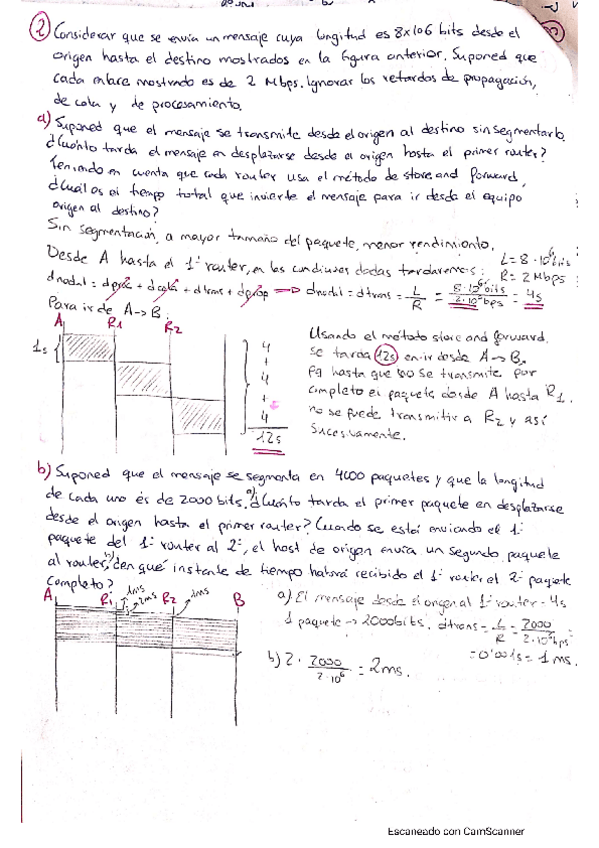 ② Considerar que se envía un mensaje cuya longitud es 8x106 bits desde el
origen hasta el destino mostrados en la figura anterior. Suponed que
cada enlace mostrado es de 2 Mbps. Ignorar los retardos de propagación,
de cola y de procesamiento.
a) Suponed que el mensaje se transmite desde el origen al destino sin segmentarlo.
¿Cuánto tarda el mensaje en desplazarse desde el origen hasta el primer router?
Teniendo en cuenta que cada router usa el método de store and forward,
¿Cuál es el tiempo total que invierte el mensaje para ir desde el equipo
origen al destino?
Sin segmentación, a mayor tamaño del paquete, menor rendimiento.
Desde A hasta el 1º router, en las condiciones dadas tardaremos:
L = 8·10⁶ bits
R = 2 Mbps
dnodal = dproc + dcola + dtrans + dprop → dnodal = dtrans = L/R = 8·10⁶ bits / 2·10⁶ bps = 4s
Para ir de A → B:
A R1 R2
1s
4
+
4
+
4
12s
Usando el método store and forward.
se tarda 12s en ir desde A → B.
pq hasta que no se transmite por
completo el paquete desde A hasta R1.
no se puede transmitir a R2 y así
sucesivamente.
b) Suponed que el mensaje se segmenta en 4000 paquetes y que la longitud
de cada uno és de 2000 bits. a) ¿Cuánto tarda el primer paquete en desplazarse
desde el origen hasta el primer router? Cuando se está enviando el 1º
paquete del 1º router al 2º, el host de origen envía un segundo paquete
al router, b) ¿en qué instante de tiempo habrá recibido el 1º router el 2º paquete
completo?
A R1 1ms 2ms R2 1ms B
a) El mensaje desde el origen al 1º router = 4s
1 paquete → 2000bits. dtrans = L/R = 2000 / 2·10⁶bps
= 0'001s = 1 ms.
b) 2 · 2000 / 2·10⁶ = 2ms.
Escaneado con CamScanner